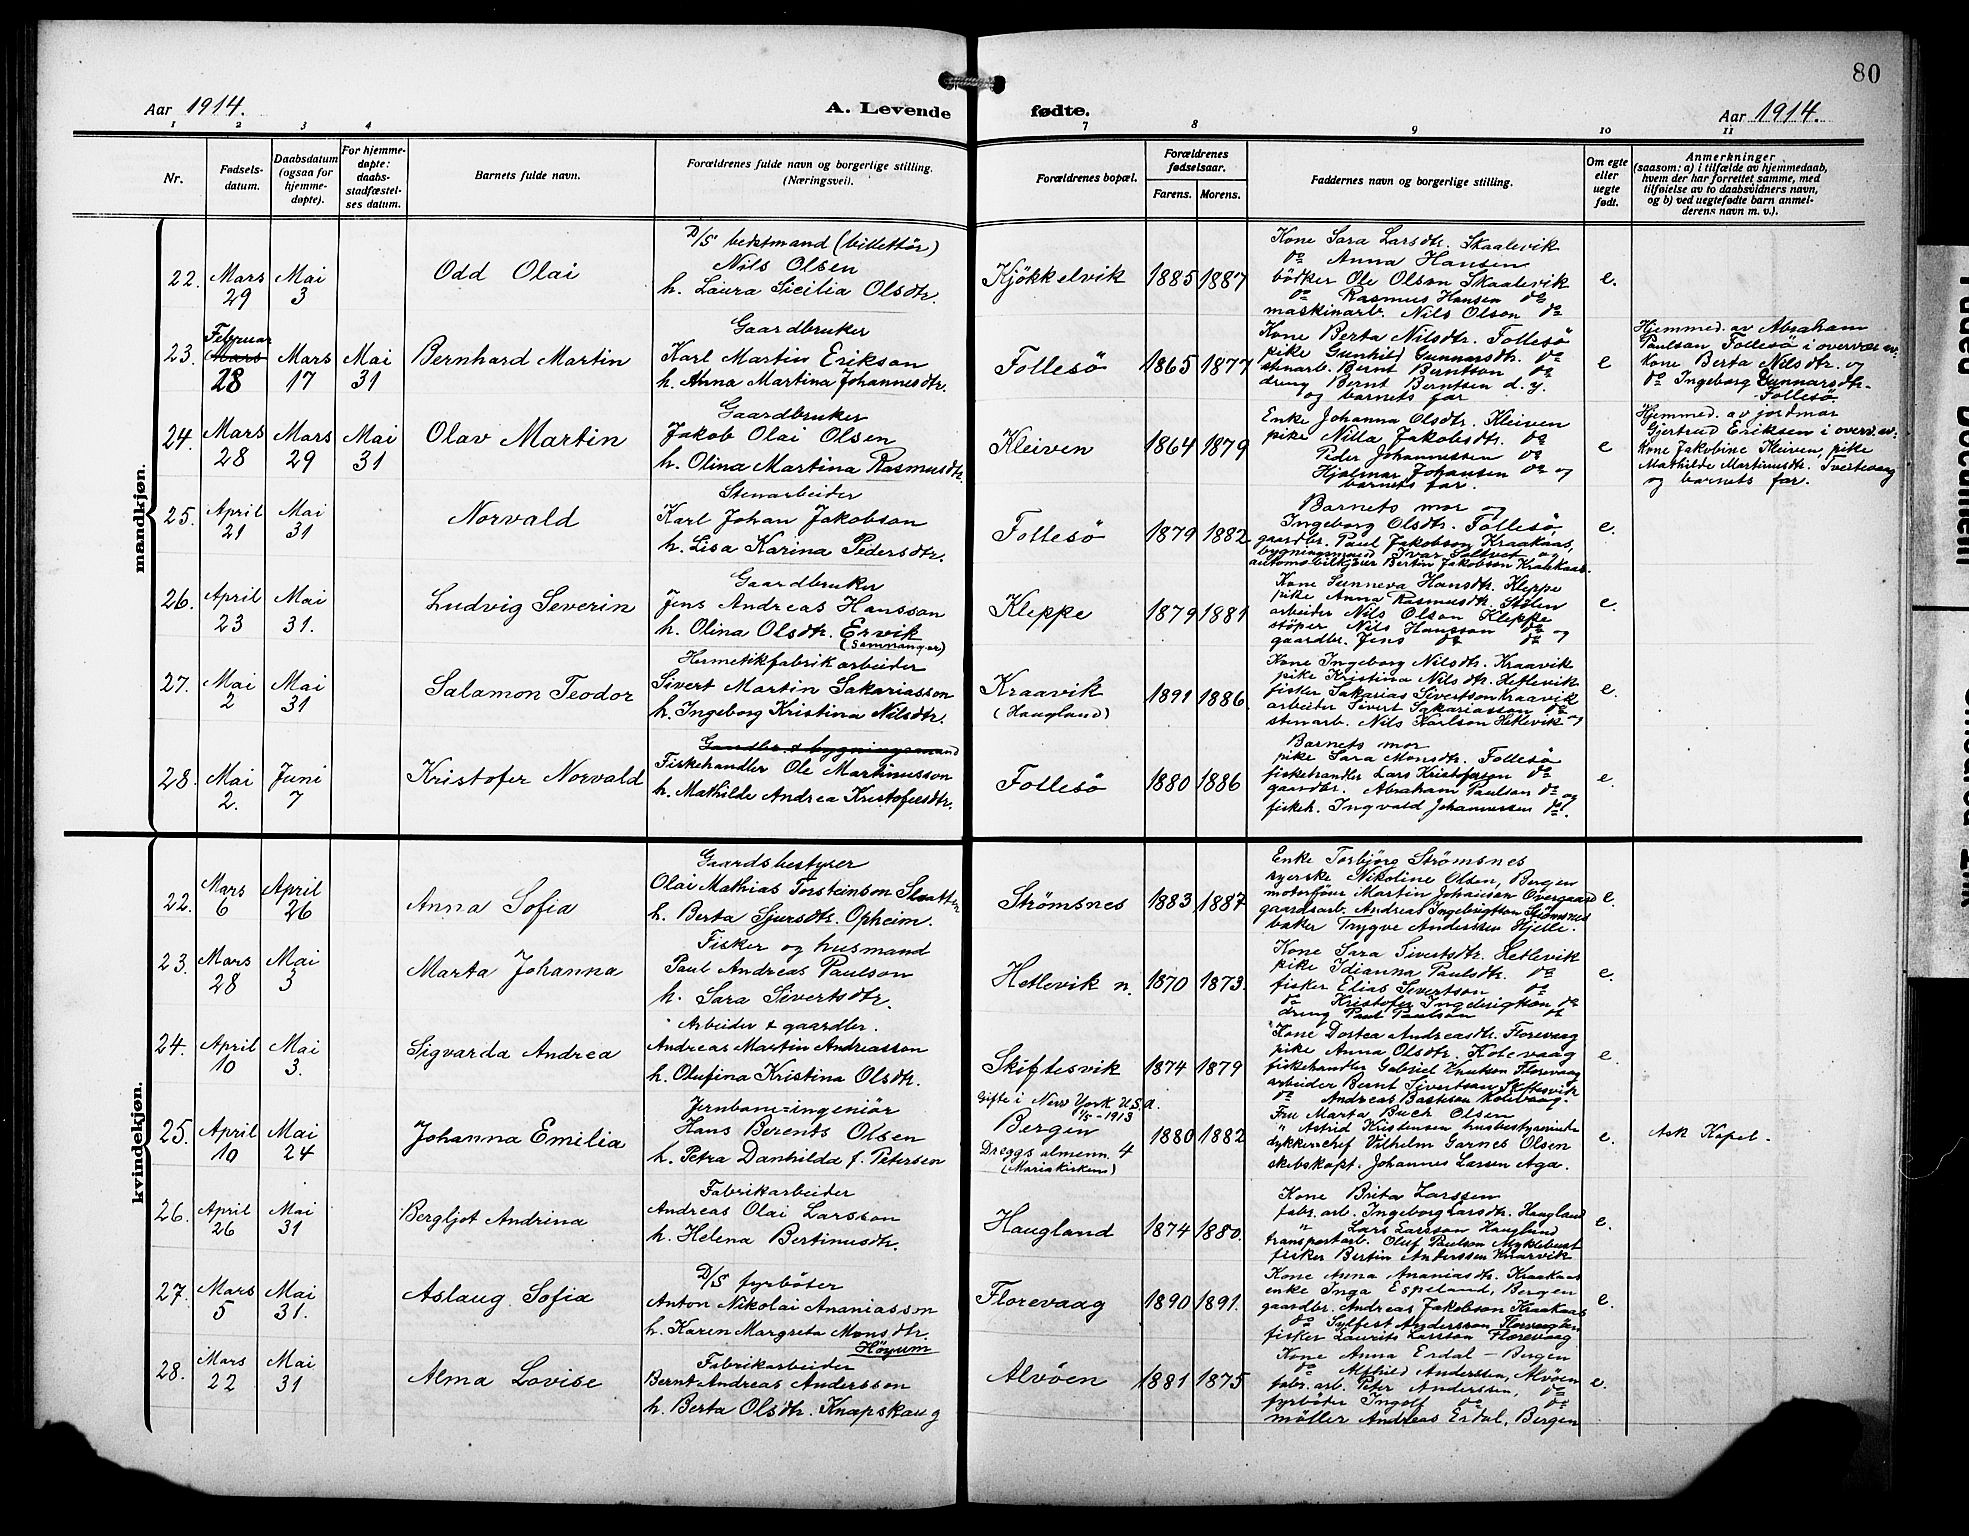 80
Aar 1914.
A. Levende
fødte.
Aar 1914.
1 2 3 4
7 8 9 10 11
Nr.
Fødsels-
datum.
Daabsdatum
(ogsaa for
hjemme-
døpte).
For hjemme-
døpte:
daabs-
stadfæstel-
ses datum.
Barnets fulde navn.
Forældrenes fulde navn og borgerlige stilling.
(Næringsvei).
Forældrenes bopæl.
Forældrenes
fødselsaar.
Farens. Morens.
Faddernes navn og borgerlige stilling.
Om egte
eller
uegte
født.
Anmerkninger
(saasom: a) i tilfælde av hjemmedaab,
hvem der har forrettet samme, med
tilføielse av to daabsvidners navn,
og b) ved uegtefødte barn anmel-
derens navn m. v.).
mandkjøn.
22. Mars
29
Mai
3
Odd Olai
D/S bestmand (billettör)
Nils Olsen
h. Laura Sicilia Olsdtr.
Kjökkelvik
1885 1887
Kone Sara Larsdtr. Skaalevik
do Anna Hansen
bödker Ole Olson Skaalevik
do Rasmus Hansen do
maskinarb. Nils Olson do
e.
23. Februar
Mars
28
Mars
17
Mai
31
Bernhard Martin
Gaardbruker
Karl Martin Erikson
h. Anna Martina Johannesdtr.
Follesö
1865 1877
Kone Berta Nilsdtr. Follesö
pike Gunhild Gunnarsdtr. do
stenarb. Bernt Berntson do
dreng Bernt Berntsen d. y.
og barnets far
e
Hjemmed. av Abraham
Paulsan Follesö i overvær av:
Kone Berta Nilsdtr. og
do Ingeborg Gunnarsdtr.
Follesö
24. Mars
28
Mars
29
Mai
31
Olav Martin
Gaardbruker
Jakob Olai Olsen
h. Olina Martina Rasmusdtr.
Kleiven
1864 1879
Enke Johanna Olsdtr. Kleiven
pike Nilla Jakobsdtr. do
Peder Johannessen do
Hjalmar Johansen do og
barnets far.
e
Hjemmed. av jordmor
Gjertrud Eriksen i overv. av:
Kone Jakobine Kleiven, pike
Mathilde Martinusdtr. Tvertevaag
og barnets far.
25. April
21
Mai
31
Norvald
Stenarbeider
Karl Johan Jakobson
h. Lisa Karina Pedersdtr.
Follesö
1879 1882
Barnets mor og
Ingeborg Olsdtr. Follesö
gaardbr. Paul Jakobson Kraakaas,
bygningsmand Ivar Soltvet og
automobilkjörer Bertin Jakobson Kraakaas.
e.
26. April
23
Mai
31.
Ludvig Severin
Gaardbruker
Jens Andreas Hansson
h. Olina Olsdtr. Ervik
(Samnanger)
Kleppe
1879 1881
Kone Sunneva Hansdtr. Kleppe
pike Anna Rasmusdtr. Stölen
arbeider Nils Olson Kleppe
stöper Nils Hansson do og
gaardbr. Jens do do
e.
27. Mai
2
Mai
31
Salamon Teodor
Hermetikfabrikarbeider
Sivert Martin Sakariasson
h. Ingeborg Kristina Nilsdtr.
Kraavik
(Haugland)
1891 1886.
Kone Ingeborg Nilsdtr. Kraavik
pike Kristina Nilsdtr. Hetlevik
fisker Sakarias Sivertson Kraavik
arbeider Sivert Sakariasson do
stenarb. Nils Karlson Hetlevik
e.
28. Mai
2.
Juni
7
Kristofer Norvald
Gaardbr. & bygningsmand
Fiskehandler Ole Martinusson
h. Mathilde Andrea Kristofersdtr.
Follesö
1880 1886
Barnets mor
pike Sara Monsdtr. Follesö
fiskehandler Lars Kristofsson do
gaardbr. Abraham Paulson do og
fiskeh. Ingvald Johannessen do.
e.
kvindekjøn.
22. Mars
6
April
26
Anna Sofia
Gaardsbestyrer
Olai Mathias Torsteinson Slaatten
h. Berta Sjursdtr. Opheim.
Strömsnes
1883 1887
Enke Torbjörg Strömsnes
syerske Nikoline Olsen, Bergen
motorförer Martin Johansen Overgaard
gaardsarb. Andreas Ingebrigtson Strömsnes
baker Trygve Anderssen Hjelle.
e.
23. Mars
28
Mai
3
Marta Johanna
Fisker og husmand
Paul Andreas Paulson
h. Sara Sivertsdtr.
Hetlevik n.
1870 1873.
Kone Sara Sivertsdtr. Hetlevik
pike Idianna Paulsdtr. do
fisker Elias Sivertson do
do Kristofer Ingebrigtson do
dreng Paul Paulson do
e.
24. April
10
Mai
3.
Sigvarda Andrea
Arbeider & gaardbr.
Andreas Martin Andreasson
h. Olufina Kristina Olsdtr.
Skiftesvik
1874 1879
Kone Dortea Andreasdtr. Florevaag
pike Anna Olsdtr. Kolevaag
fiskehandler Gabriel Knutson Florevaag
arbeider Bernt Sivertson Skiftesvik
do Andreas Basteson Kolevaag.
e.
25. April
10
Mai
24
Johanna Emilia
Jernbane-ingeniör
Hans Berents Olsen
h. Petra Danhilda f. Petersen
Gifte i New York U.S.A.
1/5-1913
Bergen
Dreggs almenn. 4
(Mariakirken)
1880 1882
Fru Marta Buch Olsen
" Astrid Kristensen husbestyrerinde
dykkerchef Vilhelm Garnes Olsen
skibskapt. Johannes Larsen Aga.
e.
Ask Kapel.
26. April
26
Mai
31
Bergljot Andrina
Fabrikarbeider
Andreas Olai Larsson
h. Helena Bertinusdtr.
Haugland
1874 1880.
Kone Brita Larssen
fabr. arb. Ingeborg Larsdtr. Haugland
" Lars Larsson Haugland
transportarb. Oluf Paulson Myklebust
fisker Bertin Anderssen Knarvik
e.
27. Mars
5
Mai
31.
Aslaug Sofia
D/S fyrböter
Anton Nikolai Ananiasson
h. Karen Margreta Monsdtr.
Höyum
Florevaag
1890 1891.
Kone Anna Ananiasdtr. Kraakaas
enke Inga Espeland, Bergen
gaardbr. Andreas Jakobson Kraakaas
do Sylfest Andersson Florvaagöen
fisker Laurits Larsson Florevaag
e.
28. Mars
22
Mai
31
Alma Lovise
Fabrikarbeider
Bernt Andreas Andersson
h. Berta Olsdtr. Knapskaug
Alvöen
1881 1875
Kone Anna Erdal – Bergen
do Alfhild Anderssen, Alvöen
fabr. arb. Peter Anderssen, do
fyrböter Ingolf do do
möller Andreas Erdal, Bergen
e.